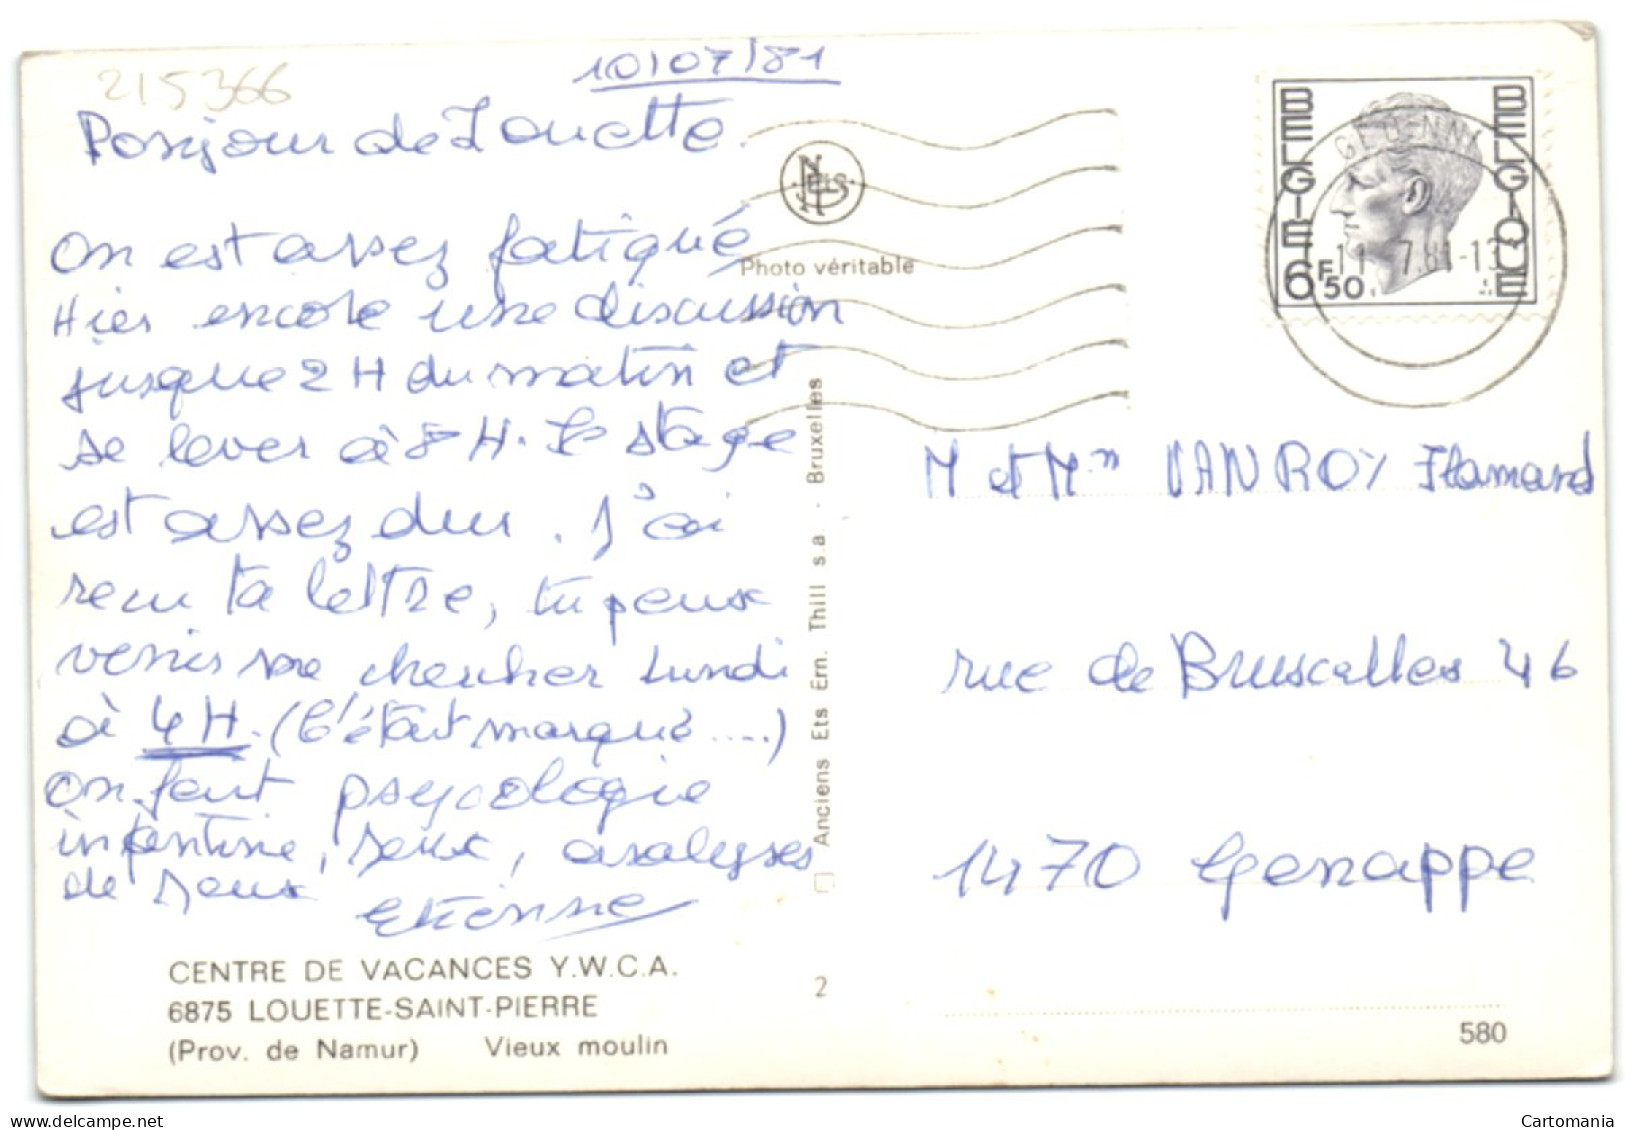 215366
10/07/81
Bonjour de Louette.
On est assez fatigué
Hier encore une discussion
jusque 2 H du matin et
se lever à 8 H. Le stage
est assez dur. J'ai
recu ta lettre, tu peux
venir me chercher Lundi
à 4 H. (C'était marqué ....)
On fait psycologie
infantine, jeux, analyses
de jeux
Etienne
CENTRE DE VACANCES Y.W.C.A.
6875 LOUETTE-SAINT-PIERRE
(Prov. de Namur) Vieux moulin
NELS
Photo véritable
Anciens Ets Ern. Thill s.a. - Bruxelles
2
BELGIE BELGIQUE
6F50
GEDINNE
11 -7.81-13
M et Mm VANROY Flamand
rue de Bruxelles 46
1470 Genappe
580
Cartomania
delcampe.net